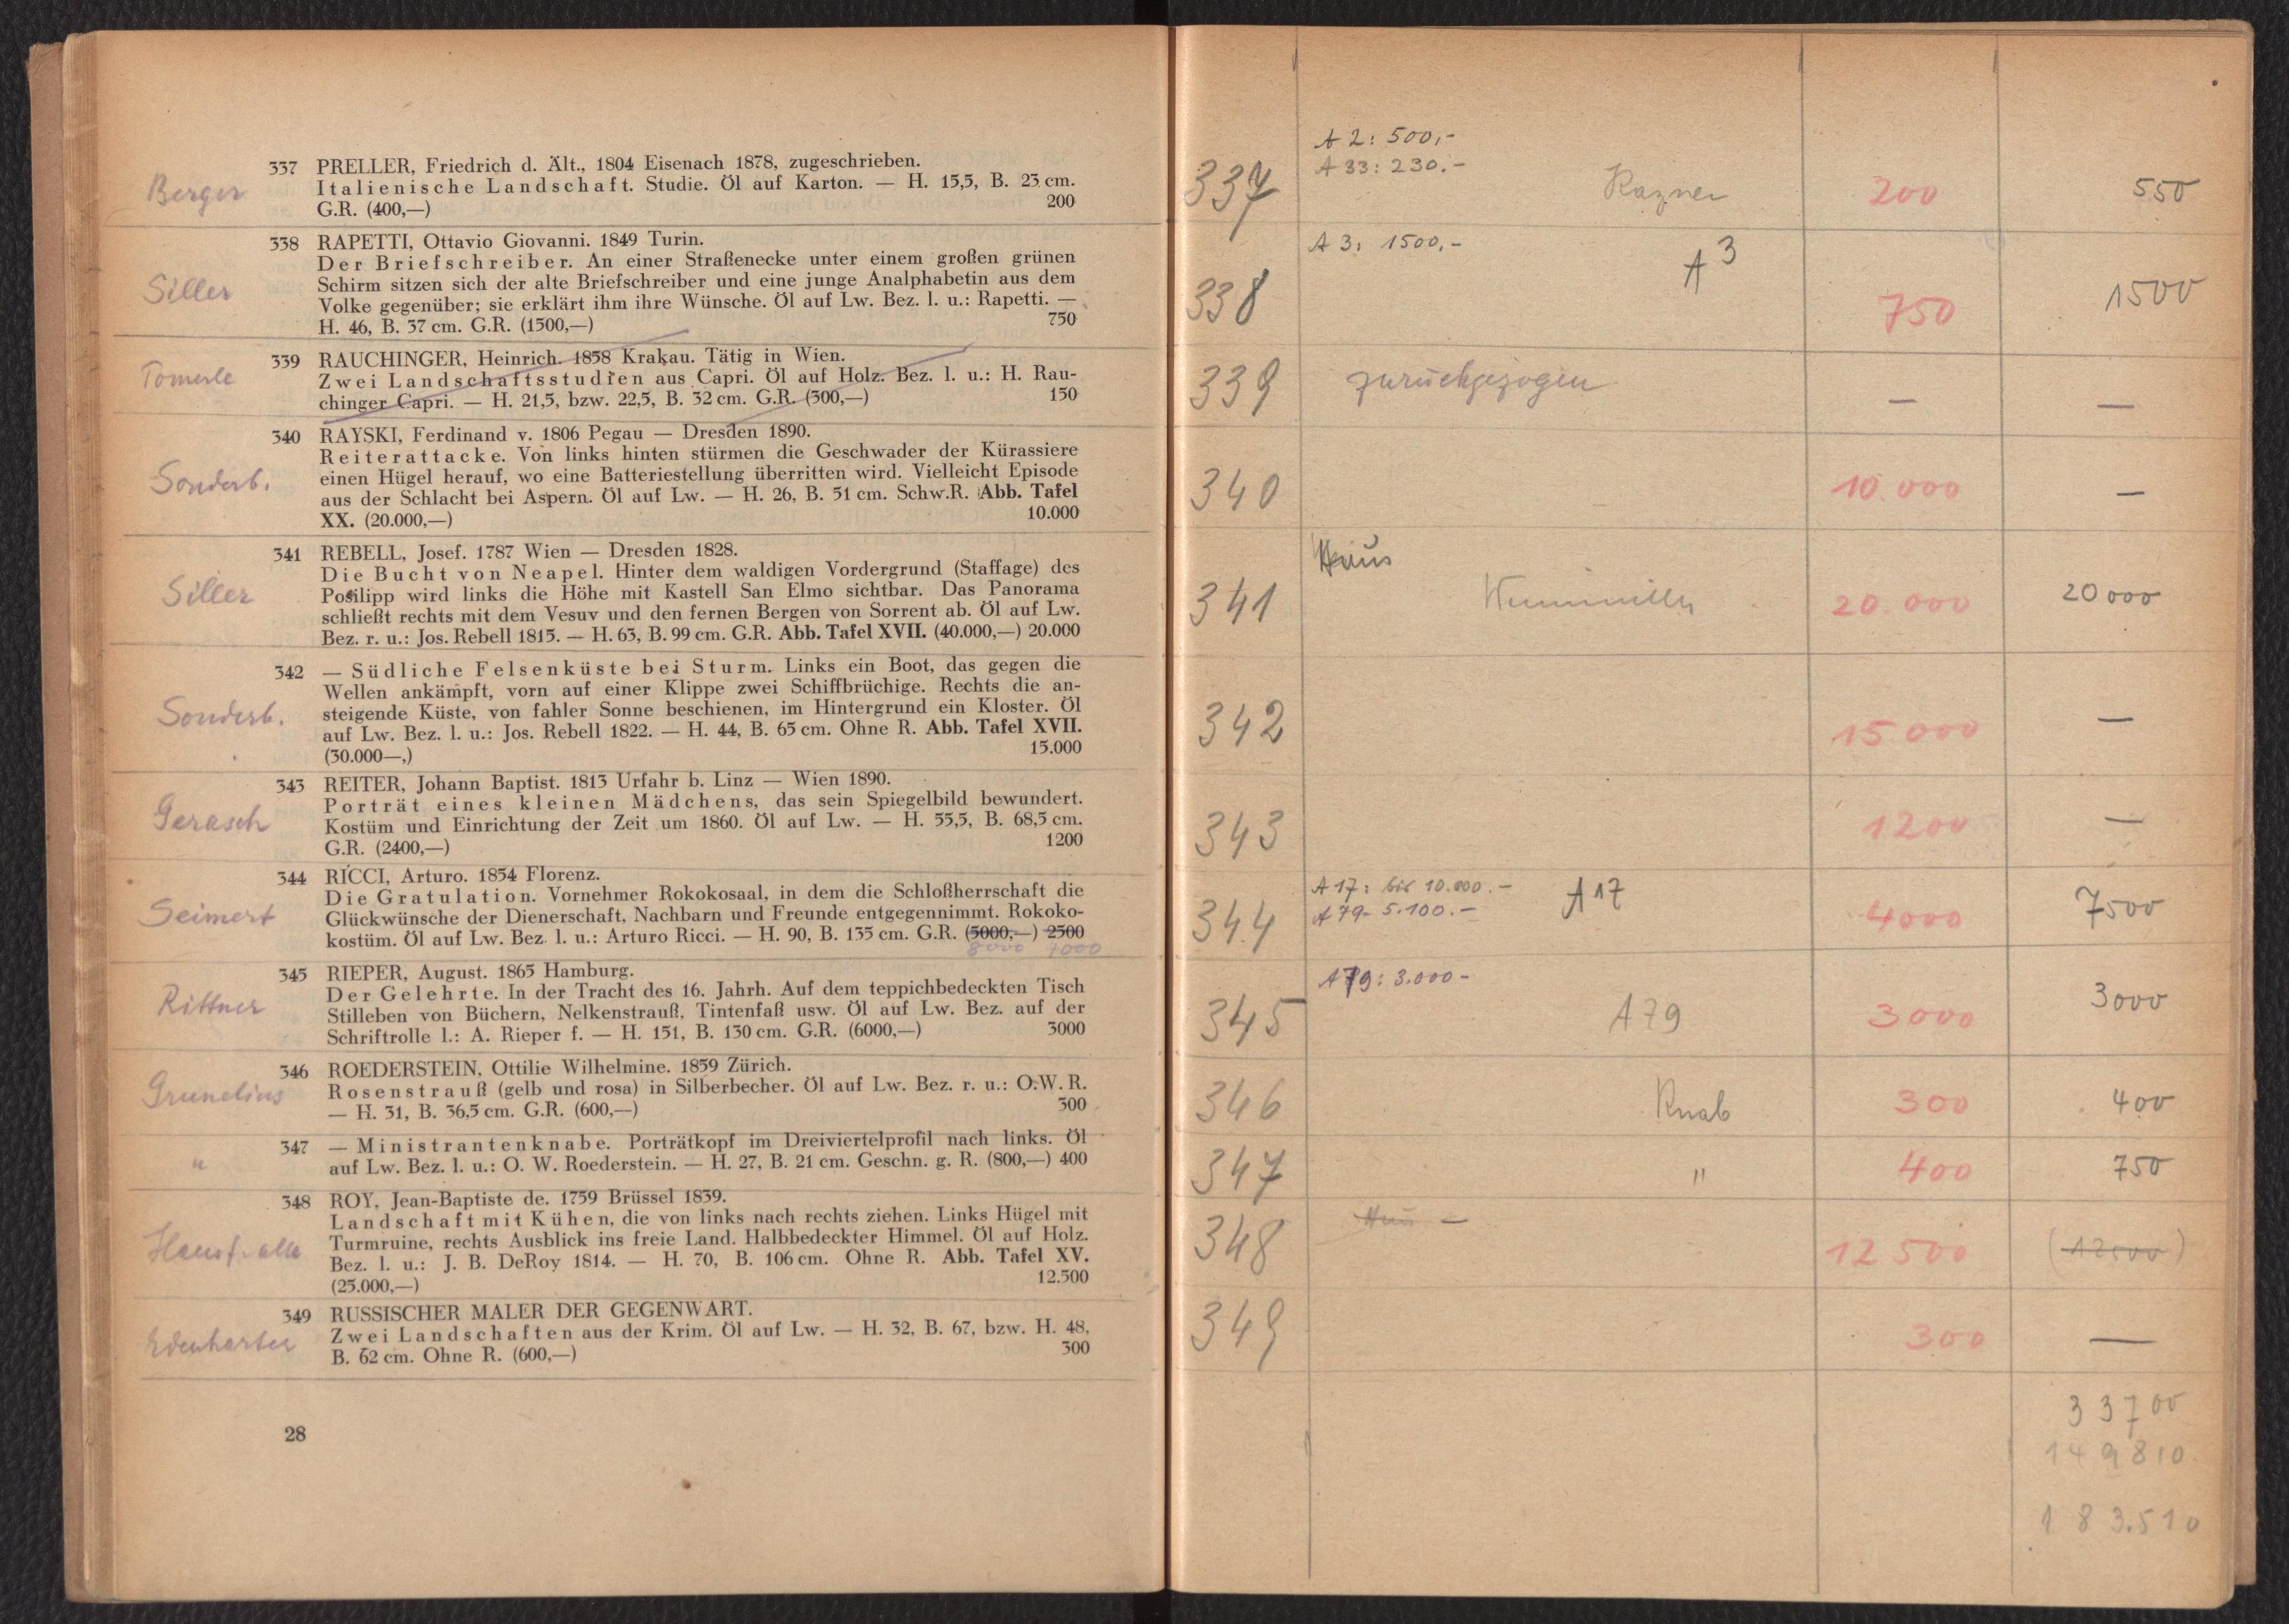 Berger
337 PRELLER, Friedrich d. Ält., 1804 Eisenach 1878, zugeschrieben.
Italienische Landschaft. Studie. Öl auf Karton. — H. 15,5, B. 23 cm.
G.R. (400,—) 200
Siller
338 RAPETTI, Ottavio Giovanni. 1849 Turin.
Der Briefschreiber. An einer Straßenecke unter einem großen grünen
Schirm sitzen sich der alte Briefschreiber und eine junge Analphabetin aus dem
Volke gegenüber; sie erklärt ihm ihre Wünsche. Öl auf Lw. Bez. l. u.: Rapetti. —
H. 46, B. 37 cm. G.R. (1500,—) 750
Tomerle
339 RAUCHINGER, Heinrich. 1858 Krakau. Tätig in Wien.
Zwei Landschaftsstudien aus Capri. Öl auf Holz. Bez. l. u.: H. Rau-
chinger Capri. — H. 21,5, bzw. 22,5, B. 32 cm. G.R. (300,—) 150
Sonderb.
340 RAYSKI, Ferdinand v. 1806 Pegau — Dresden 1890.
Reiterattacke. Von links hinten stürmen die Geschwader der Kürassiere
einen Hügel herauf, wo eine Batteriestellung überritten wird. Vielleicht Episode
aus der Schlacht bei Aspern. Öl auf Lw. — H. 26, B. 51 cm. Schw.R. Abb. Tafel
XX. (20.000,—) 10.000
Siller
341 REBELL, Josef. 1787 Wien — Dresden 1828.
Die Bucht von Neapel. Hinter dem waldigen Vordergrund (Staffage) des
Posilipp wird links die Höhe mit Kastell San Elmo sichtbar. Das Panorama
schließt rechts mit dem Vesuv und den fernen Bergen von Sorrent ab. Öl auf Lw.
Bez. r. u.: Jos. Rebell 1815. — H. 63, B. 99 cm. G.R. Abb. Tafel XVII. (40.000,—) 20.000
Sonderb.
342 — Südliche Felsenküste bei Sturm. Links ein Boot, das gegen die
Wellen ankämpft, vorn auf einer Klippe zwei Schiffbrüchige. Rechts die an-
steigende Küste, von fahler Sonne beschienen, im Hintergrund ein Kloster. Öl
auf Lw. Bez. l. u.: Jos. Rebell 1822. — H. 44, B. 65 cm. Ohne R. Abb. Tafel XVII.
(30.000—,) 15.000
Gerasch
343 REITER, Johann Baptist. 1813 Urfahr b. Linz — Wien 1890.
Porträt eines kleinen Mädchens, das sein Spiegelbild bewundert.
Kostüm und Einrichtung der Zeit um 1860. Öl auf Lw. — H. 55,5, B. 68,5 cm.
G.R. (2400,—) 1200
Seimert
344 RICCI, Arturo. 1854 Florenz.
Die Gratulation. Vornehmer Rokokosaal, in dem die Schloßherrschaft die
Glückwünsche der Dienerschaft, Nachbarn und Freunde entgegennimmt. Rokoko-
kostüm. Öl auf Lw. Bez. l. u.: Arturo Ricci. — H. 90, B. 135 cm. G.R. (5000,—) 2500
8000 4000
Rittner
345 RIEPER, August. 1865 Hamburg.
Der Gelehrte. In der Tracht des 16. Jahrh. Auf dem teppichbedeckten Tisch
Stilleben von Büchern, Nelkenstrauß, Tintenfaß usw. Öl auf Lw. Bez. auf der
Schriftrolle l.: A. Rieper f. — H. 151, B. 130 cm. G.R. (6000,—) 3000
Grunelius
346 ROEDERSTEIN, Ottilie Wilhelmine. 1859 Zürich.
Rosenstrauß (gelb und rosa) in Silberbecher. Öl auf Lw. Bez. r. u.: O.W. R.
— H. 31, B. 36,5 cm. G.R. (600,—) 300
"
347 — Ministrantenknabe. Porträtkopf im Dreiviertelprofil nach links. Öl
auf Lw. Bez. l. u.: O. W. Roederstein. — H. 27, B. 21 cm. Geschn. g. R. (800,—) 400
348 ROY, Jean-Baptiste de. 1759 Brüssel 1839.
Landschaft mit Kühen, die von links nach rechts ziehen. Links Hügel mit
Turmruine, rechts Ausblick ins freie Land. Halbbedeckter Himmel. Öl auf Holz.
Bez. l. u.: J. B. DeRoy 1814. — H. 70, B. 106 cm. Ohne R. Abb. Tafel XV.
(25.000,—) 12.500
Edenharter
349 RUSSISCHER MALER DER GEGENWART.
Zwei Landschaften aus der Krim. Öl auf Lw. — H. 32, B. 67, bzw. H. 48,
B. 62 cm. Ohne R. (600,—) 300
28
A 2: 500,-
A 33: 230.-
337 Kazner 200 550
A 3: 1500,-
338 A 3 750 1500
339 zurückgezogen — —
340 10.000 —
Haus
341 20.000 20000
342 15.000 —
343 1200 —
A 17: bis 10.000.-
A 79- 5.100.-
344 A 17 4000 7500
A 79: 3.000-
345 A 79 3000 3000
346 Knab 300 400
347 " 400 750
348 — 12500 (12500)
349 300 —
33700
149810
183.510